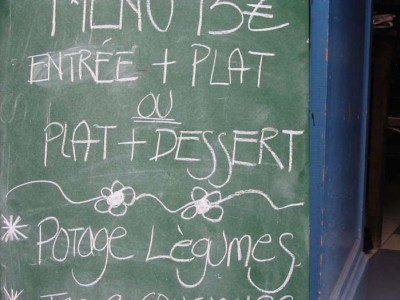 MENU 15€
ENTRÉE + PLAT
OU
PLAT + DESSERT
POTAGE LÉGUMES